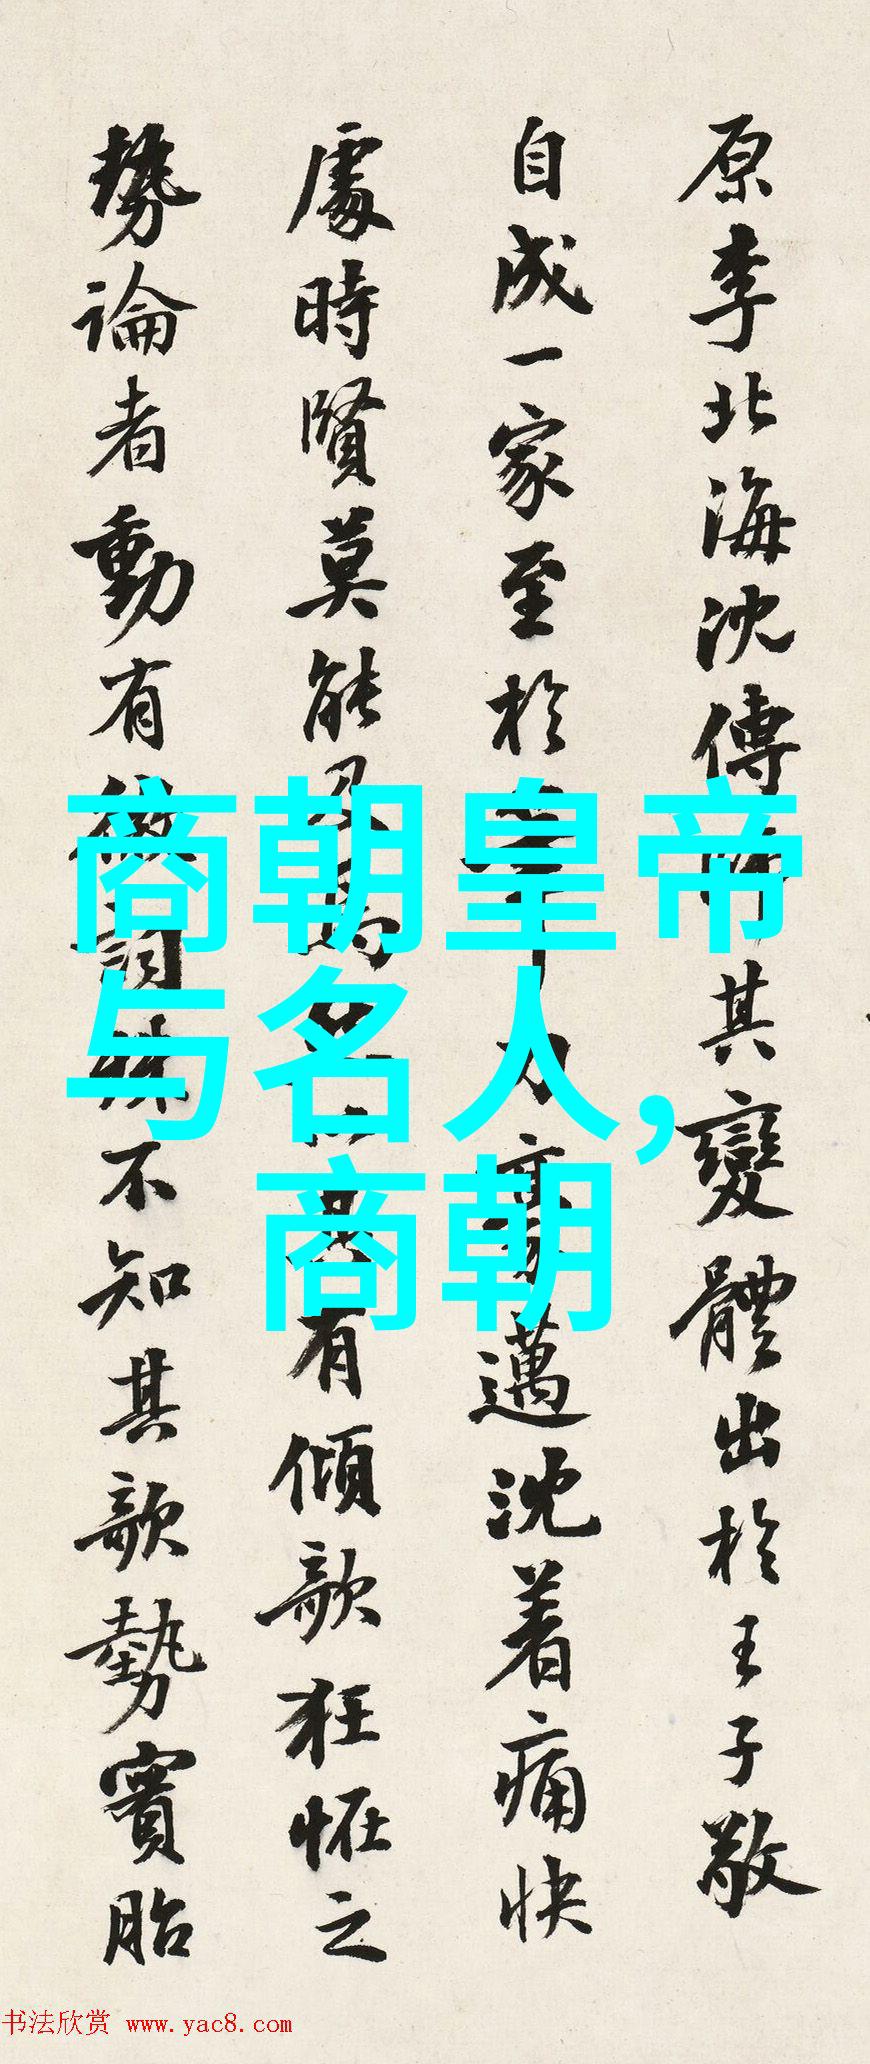 原李北海沈傳師其變體出於王子敬
自成一家至於 力豪邁沈着痛快
處時賢莫能及 有傾欹狂怪之
勢論者動有微詞殊不知其欹勢實胎
商朝皇帝
与名人,
商朝
书法欣赏 www.yac8.com